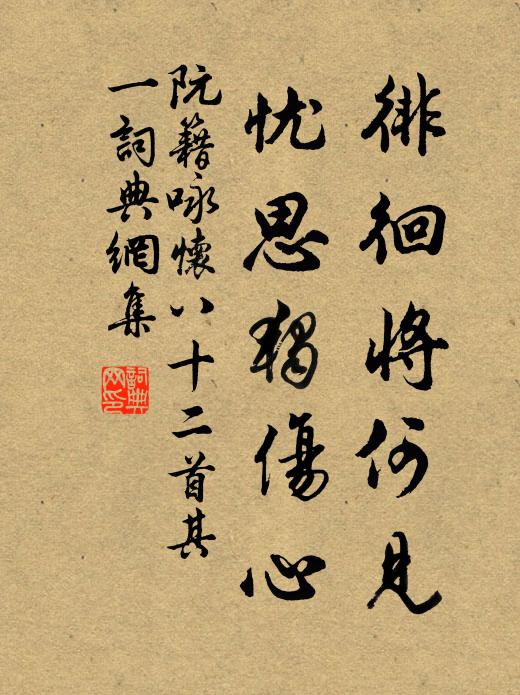 徘徊将何見
忧思獨傷心
阮籍咏懷八十二首其
一詞典網集
詞典
网印